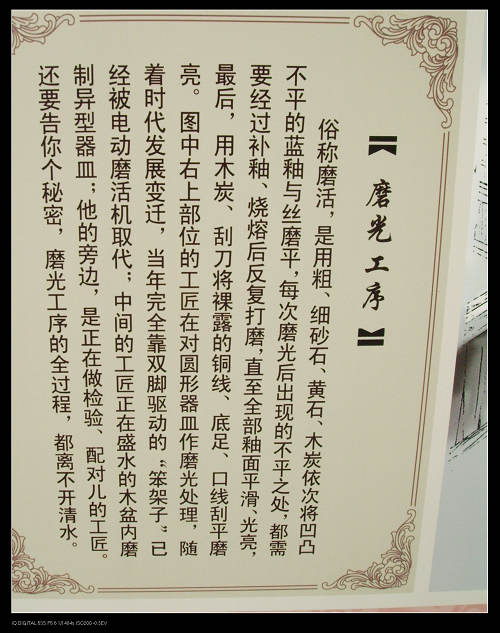 【磨光工序】
俗称磨活,是用粗、细砂石、黄石、木炭依次将凹凸
不平的蓝釉与丝磨平,每次磨光后出现的不平之处,都需
要经过补釉、烧熔后反复打磨,直至全部釉面平滑、光亮,
最后,用木炭、刮刀将裸露的铜线、底足、口线刮平磨
亮。图中右上部位的工匠在对圆形器皿作磨光处理,随
着时代发展变迁,当年完全靠双脚驱动的“笨架子”已
经被电动磨活机取代;中间的工匠正在盛水的木盆内磨
制异型器皿;他的旁边,是正在做检验、配对儿的工匠。
还要告你个秘密,磨光工序的全过程,都离不开清水。